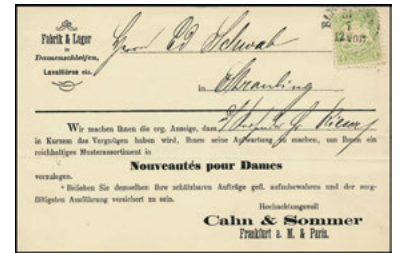 Fabrik & Lager
in
Damenschleifen,
Lavallières etc.
Herrn Ed Schwab
in Straubing
Wir machen Ihnen die erg. Anzeige, dass
in Kurzem das Vergnügen haben wird, Ihnen seine Aufwartung zu machen, um Ihnen ein
reichhaltiges Musterassortiment in
Nouveautés pour Dames
vorzulegen.
Belieben Sie demselben Ihre schätzbaren Aufträge gefl. aufzubewahren und der sorg-
fältigsten Ausführung versichert zu sein.
Hochachtungsvoll
Cahn & Sommer
Frankfurt a. M. & Paris.